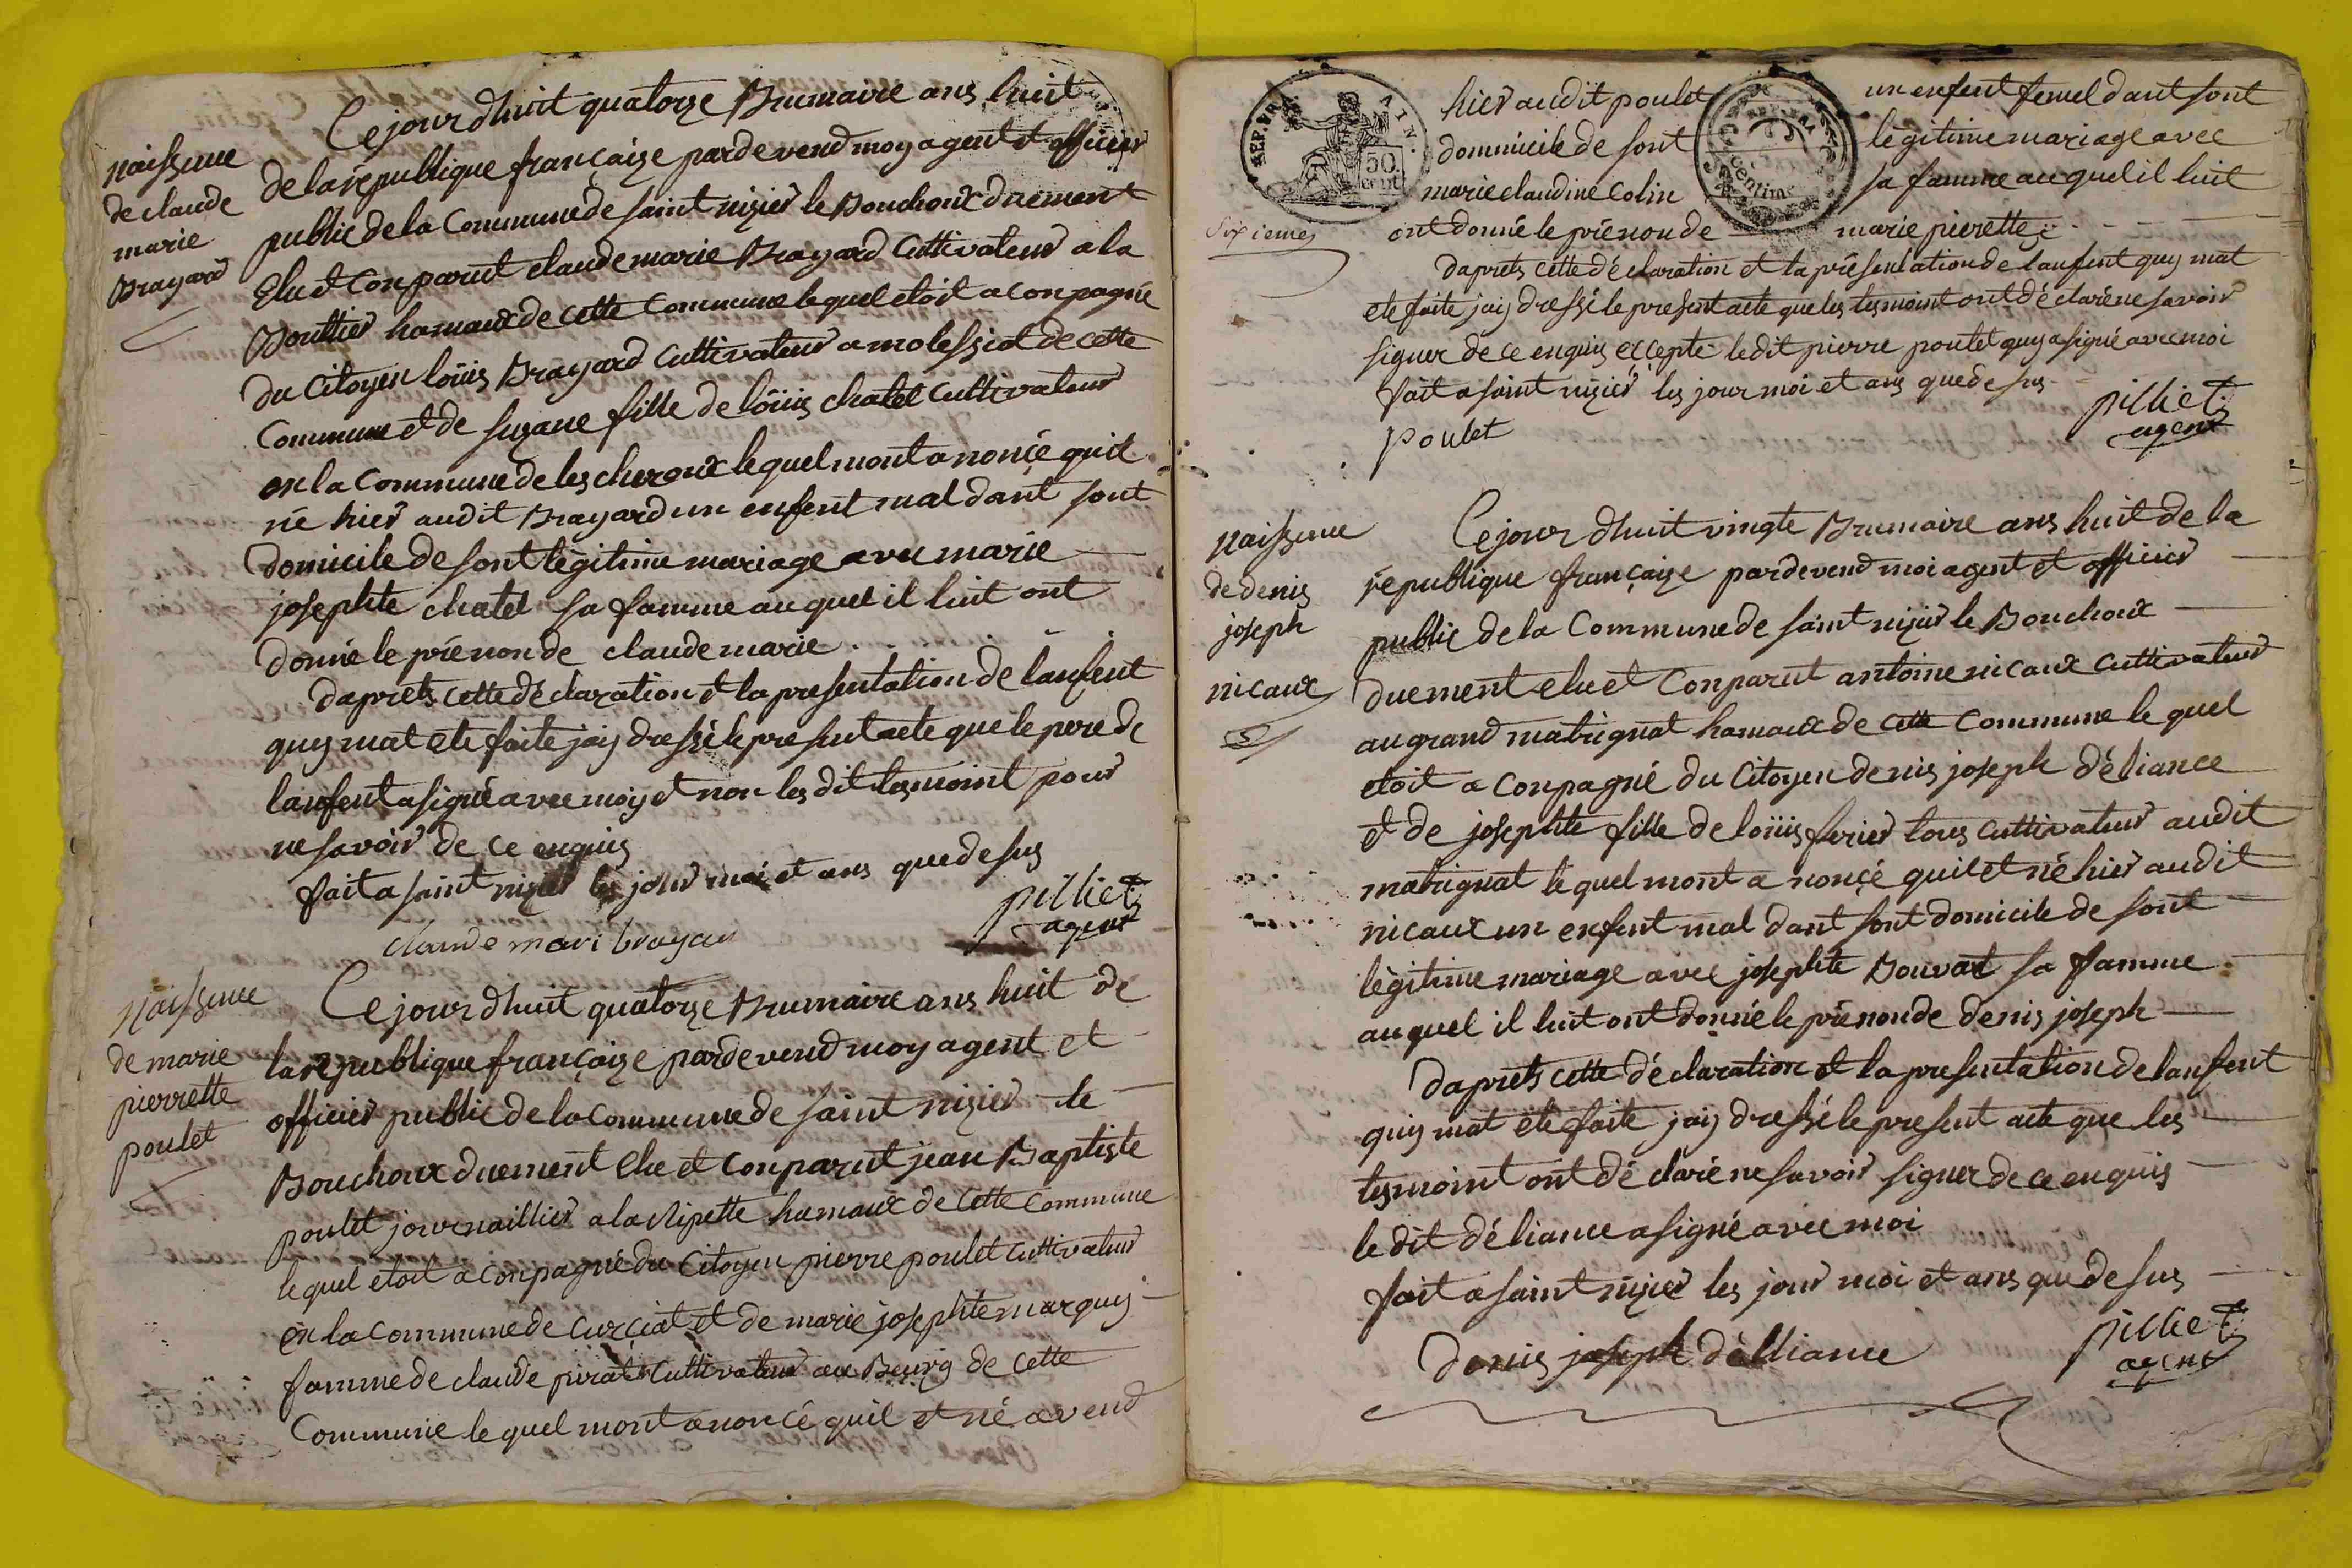 Ce jour dhuit quatorze Brumaire ans huit
naissence
de claude
marie
Brayard
de la république françaize pardevend moy agent et officier
public de la Commune de saint nizier le Bouchoux duement
Elu et Conparut claude marie Brayard Cultivateur a la
Bouttier hamaux de cette Commune lequel etoit aconpagné
du Citoyen loüis Brayard Cultivateur a molessiat de cette
Commune et de suzane fille de loüis chatel Cultivateur
en la Commune de les cheroux lequel mont anoncé quil
né hier audit Brayard un enfent mal dant sont
domicile de sont légitime mariage avec marie
josephte chatel sa famme au quel il luit ont
donné le prénon de claude marie
daprets cette déclaration et la presentation de lanfent
quy mat ete faite jay dressé le present acte que le pere de
lanfent a signé avec moy et non les dit tesmoint pour
ne savoir de ce enquis
fait a saint nizier les jour moi et ans que desus
claude mari brayar
pilliet
agent
Naissence
de marie
pierrette
poulet
Ce jour dhuit quatorze Brumaire ans huit de
la republique françaize pardevend moy agent et
officier public de la Commune de saint nizier le
Bouchoux duement Elu et Conparut jean Baptiste
poulet journaillier a la Ripette hamaux de Cette Commune
lequel etoit aconpagné du Citoyen pierre poulet Cultivateur
en la Commune de Curciat et de marie josephte marquy
famme de claude pirat Cultivateur au Bourg de Cette
Commune lequel mont anoncé quil et né avend
REP. FRA.
AIN.
50
cent
centim
hier audit poulet un enfent femel dant sont
dommicile de sont légitime mariage avec
marie claudine Colin sa famme au quel il luit
Sixiemes
ont donné le prénon de marie pierrette
daprets cette déclaration et la présentation de lanfent quy mat
ete faite jay dressé le present acte que les tesmoint ont déclaré ne savoir
signer de ce enquis excepté ledit pierre poulet quy a signé avec moi
fait a saint nizier les jour moi et ans que desus
Poulet
pilliet
agent
Naissence
de denis
joseph
nicaux
Ce jour dhuit vingte Brumaire ans huit de la
république françaize pardevend moi agent et officier
public de la Commune de saint nizier le Bouchoux
duement elu et Conparut antoine nicaux Cultivateur
au grand matrignat hamaux de cette Commune le quel
etoit a Conpagné du Citoyen denis joseph déliance
et de josephte fille de loüis ferier tous Cultivateur audit
matrignat le quel mont a noncé quil et né hier audit
nicaux un enfent mal dant sont domicile de sont
légitime mariage avec josephte Bouvard sa famme
auquel il luit ont donné le prénon de denis joseph
daprets cette déclaration et la presentation de lanfent
quy mat ete faite jay dressé le present acte que les
tesmoint ont déclaré ne savoir signer de ce enquis
le dit déliance a signé avec moi
fait a saint nizier les jour moi et ans que desus
denis joseph délliance
pilliet
agent